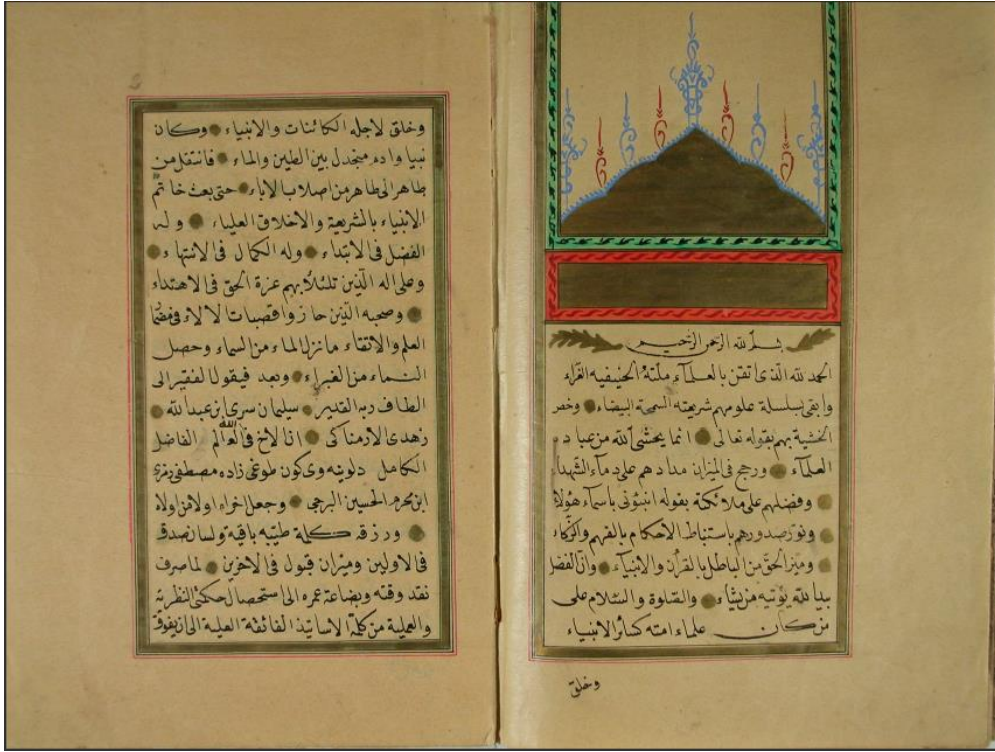 بسم الله الرحمن الرحيم
الحمد لله الذى اتقن بالعلمآء ملته الحنيفيه الغراء
وابقى بسلسلة علومهم شريعته السمحة البيضاء وخص
الخشية بهم بقوله تعالى انما يخشى الله من عباده
العلمآء ورجح فى الميزان مدادهم على دمآء الشهداء
وفضلهم على ملائكته بقوله انبئونى باسمآء هؤلاء
ونور صدورهم باستنباط الاحكام بالفهم والذكاء
وميز الحق من الباطل بالقرأن والانبيآء وان الفضل
بيد الله يؤتيه من يشاء والصلوة والسلام على
من كان علماء امته كسائر الانبياء
وخلق
وخلق لاجله الكائنات والانبياء وكان
نبيا وادم منجدل بين الطين والماء فانتقل من
طاهر الى طاهر من اصلاب الاباء حتى بعث خاتم
الانبياء بالشريعة والاخلاق العلياء وله
الفضل فى الابتداء وله الكمال فى الانتهاء
وعلى اله الذين تلئلأ بهم عزة الحق فى الاهتداء
وصحبه الذين حازوا قصبات لالاء فى
العلم والاتقاء ما نزل الماء من السماء وحصل
النماء من الغبراء وبعد فيقول الفقير الى
الطاف ربه القدير سليمان سرى ابن عبد الله
زهدى الارمناكى ان الاخ فى الله العالم الفاضل
الكامل زاده مصطفى رمزى
ابن محرم الحسين وجعل اخراه اولا من اولاه
ورزقه كلمة طيبه باقية ولسان صدق
فى الاولين وميزان قبول فى الاخرين لما صرف
نقد وقته وبضاعة عمره الى استحصال حكمتى النظرية
والعملية من كلمة الاساتيذ الفائقة العلية الى ان يفوقه